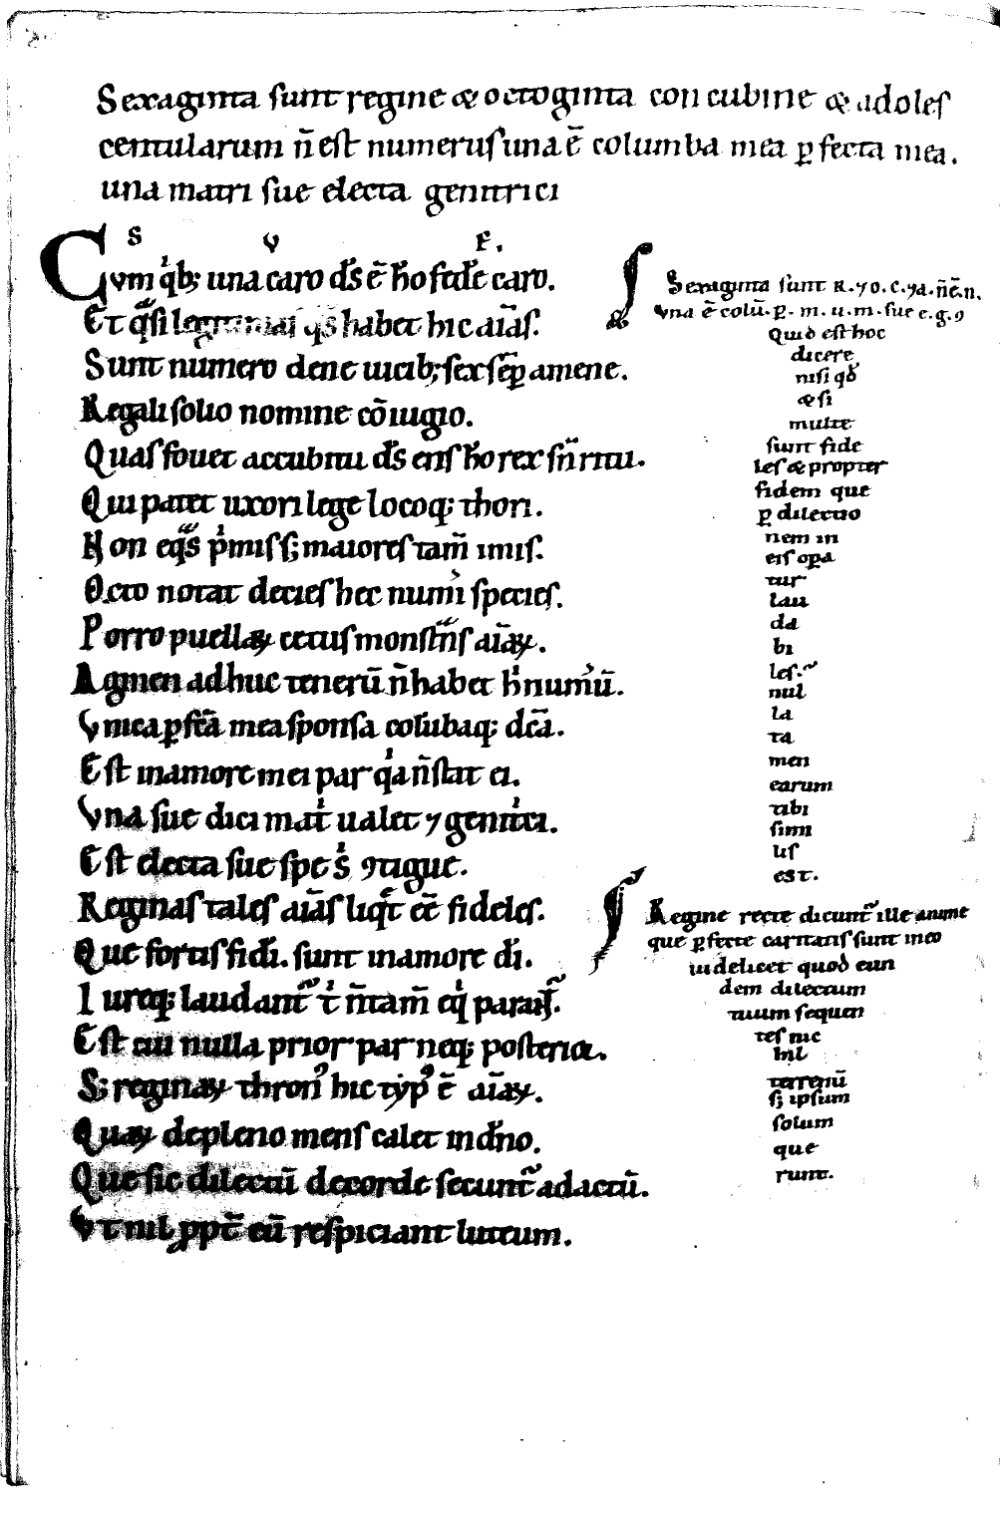 Sexaginta sunt regine & octoginta concubine & adoles
centularum n̄ est numerus una ē columba mea ꝑfecta mea.
una matri sue electa genitrici
S V F.
Cum qͥbꝫ una caro dr̄s ē hō fidēe caro.
Et habet hic aīas.
Sunt numero dene uicibꝫ sex semꝑ amene.
Regali solio nomine cōiugio.
Quas fouet accubitu
Qui patet uxori lege locoqꝫ thori.
Non maiores tam̄ imis.
Octo notat decies hec numi species.
Porro puellaꝝ cetus monstrās aīaꝝ.
Agmen adhuc tenerū n̄ habet numū.
Vnica ꝑfcā mea sponsa colūbaqꝫ dcā.
Est in amore mei par qͥa n̄ stat ei.
Vna sue dici matͥ ualet ⁊ genitͥci.
Est electa sue spe sͥ ꝯtigue.
Reginas tales aīas liqͥt eē fideles.
Que fortis fidi. sunt in amore di.
Iureqꝫ laudant
Est cui nulla prior par neqꝫ posterior.
Sꝫ reginaꝝ thronꝰ hic typꝰ ē aīaꝝ.
Quaꝝ de pleno mens calet in dn̄o.
Que sic dilectū de corde secunt̄ ad actū.
Vt nil ꝓpt̄ eū respiciant luteum.
Sexaginta sunt R. ⁊ o. c. ⁊ a. n̄ ē. n.
Vna ē colū. ꝑ. m. u. m. sue e. g. ꝯ
Quid est hoc
dicere
nisi qđ
& si
multe
sunt fide
les & propter
fidem que
ꝑ dilectio
nem in
eis oꝑa
tur
lau
da
bi
les.
nul
la
ta
men
earum
tibi
simi
lis
est.
Regine recte dicunt̄ ille anime
que ꝑfecte caritatis sunt in eo
uidelicet quod eun
dem dilectum
tuum sequen
tes nic
hil
terrenū
sꝫ ipsum
solum
que
runt.